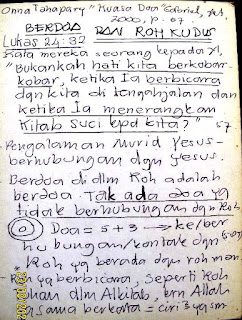 Onna Tahapary "Kuasa Doa" Gabriel,
2000, p. 57
BERDOA DAN ROH KUDUS
Lukas 24:32
Kata mereka seorang kepada
"Bukankah hati kita berkobar-
kobar, ketika Ia berbicara
dgn kita di tengah jalan dan
ketika Ia menerangkan
Kitab Suci kpd kita?" 57
Pengalaman Murid Yesus-
berhubungan dgn Yesus.
Berdoa di dlm Roh adalah
berdoa. Tak ada doa yg
tidak berhubungan dgn Roh
Doa = 5 + 3 → ke/ber
hubungan/kontak dgn
Roh yg berada dgn roh man.
Roh yg berbicara, seperti Roh
Tuhan dlm Alkitab, krn Allah
bersama berkata = ciri 3 yg sm